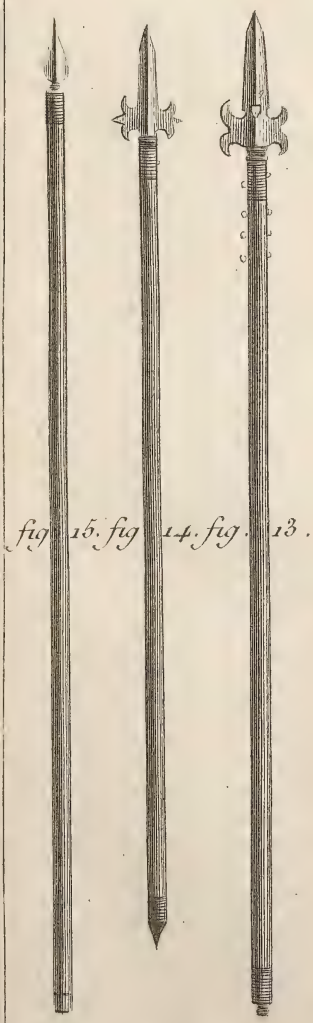 fig. 15. fig. 14. fig. 13.